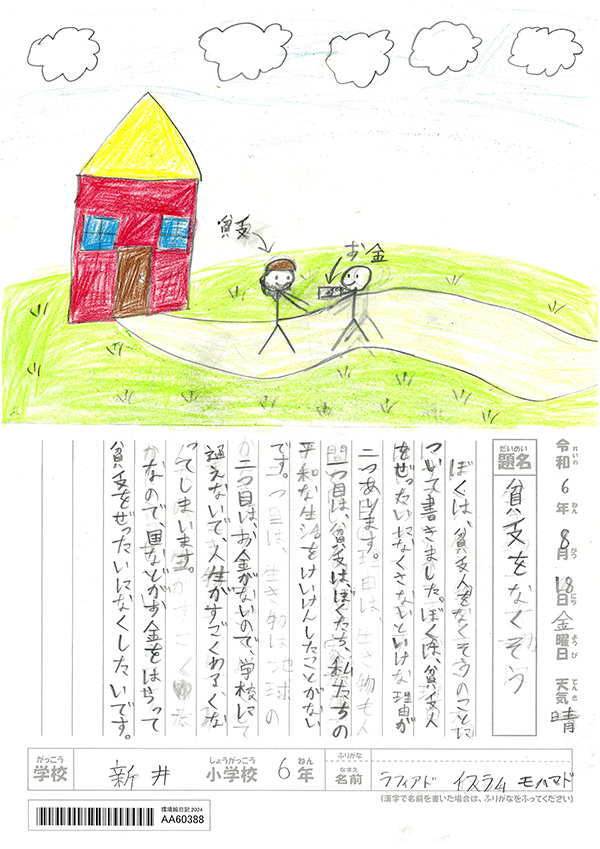 貧支
お金
令和6年8月18日金曜日 天気 晴
れいわ ねん がつ にち ようび てんき
だいめい
題名 貧支をなくそう
ぼくは、貧支人をなくそうのことに
ついて書きました。ぼくは、貧支人
をぜったいになくさないといけな理由が
二つあります。
一つ目は、貧支は、ぼくたち、私たちの
平和な生活をけいけんしたことがない
です。
二つ目は、お金がないので、学校にして
超えないで人生がすごくわるくな
ってしまいます。
なので、国などがお金をはらって
貧支をぜったいになくしたいです。
がっこう しょうがっこう ねん なまえ ふりがな
学校 新井 小学校 6年 名前 ラフィアド イスラム モハマド
(漢字で名前を書いた場合は、ふりがなをふってください)
環境絵日記2024
AA60388